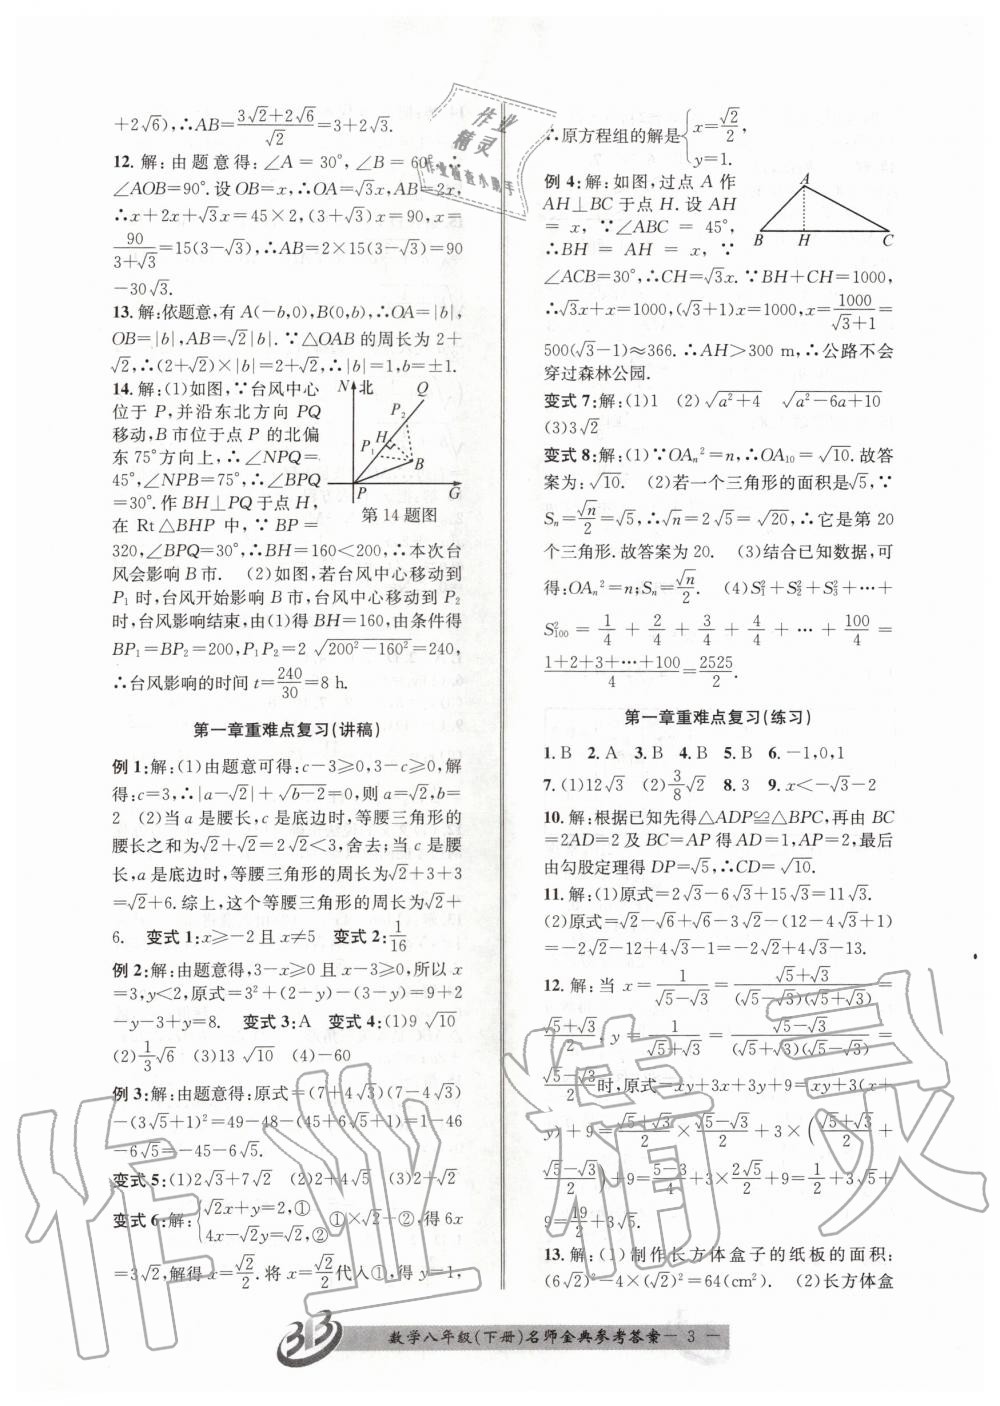 +2√6),∴AB=(3√2+2√6)/√2=3+2√3.
12. 解:由题意得:∠A=30°,∠B=60°,∴
∠AOB=90°.设OB=x,∴OA=√3x,AB=2x,
∴x+2x+√3x=45×2,(3+√3)x=90,x=
90/(3+√3)=15(3-√3),∴AB=2×15(3-√3)=90
-30√3.
13. 解:依题意,有A(-b,0),B(0,b),∴OA=|b|,
OB=|b|,AB=√2|b|.∵△OAB的周长为2+
√2,∴(2+√2)×|b|=2+√2,∴|b|=1,b=±1.
14. 解:(1)如图,∵台风中心
位于P,并沿东北方向PQ
移动,B市位于点P的北偏
东75°方向上,∴∠NPQ=
45°,∠NPB=75°,∴∠BPQ
=30°.作BH⊥PQ于点H,
在Rt△BHP中,∵BP=
320,∠BPQ=30°,∴BH=160<200,∴本次台
风会影响B市. (2)如图,若台风中心移动到
P₁时,台风开始影响B市,台风中心移动到P₂
时,台风影响结束,由(1)得BH=160,由条件得
BP₁=BP₂=200,P₁P₂=2√(200²-160²)=240,
∴台风影响的时间t=240/30=8 h.
N 北 Q P₂ H P₁ B P G
第14题图
第一章重难点复习(讲稿)
例1:解:(1)由题意可得:c-3≥0,3-c≥0,解
得:c=3,∴|a-√2|+√(b-2)=0,则a=√2,b=
2 (2)当a是腰长,c是底边时,等腰三角形的
腰长之和为√2+√2=2√2<3,舍去;当c是腰
长,a是底边时,等腰三角形的周长为√2+3+3
=√2+6.综上,这个等腰三角形的周长为√2+
6. 变式1:x≥-2且x≠5 变式2:1/16
例2:解:由题意得,3-x≥0且x-3≥0,所以x
=3,y<2,原式=3²+(2-y)-(3-y)=9+2
-y-3+y=8. 变式3:A 变式4:(1)9√10
(2)1/3√6 (3)13√10 (4)-60
例3:解:由题意得:原式=(7+4√3)(7-4√3)
-(3√5+1)²=49-48-(45+6√5+1)=1-46
-6√5=-45-6√5.
变式5:(1)2√3+7√2 (2)1+√2 (3)2+√2
变式6:解:{√2x+y=2,①
4x-√2y=√2,②
①×√2+②,得6x
=3√2,解得x=√2/2.将x=√2/2代入①,得y=1,
∴原方程组的解是{x=√2/2,
y=1.
例4:解:如图,过点A作
AH⊥BC于点H.设AH
=x,∵∠ABC=45°,
∴BH=AH=x,∵
∠ACB=30°,∴CH=√3x.∵BH+CH=1000,
∴√3x+x=1000,(√3+1)x=1000,x=1000/(√3+1)=
500(√3-1)≈366.∴AH>300 m,∴公路不会
穿过森林公园.
A B H C
变式7:解:(1)1 (2)√(a²+4) √(a²-6a+10)
(3)3√2
变式8:解:(1)∵OAₙ²=n,∴OA₁₀=√10.故答
案为:√10. (2)若一个三角形的面积是√5,∵
Sₙ=√n/2=√5,∴√n=2√5=√20,∴它是第20
个三角形.故答案为20. (3)结合已知数据,可
得:OAₙ²=n;Sₙ=√n/2. (4)S₁²+S₂²+S₃²+…+
S₁₀₀²=1/4+2/4+3/4+4/4+…+100/4=
(1+2+3+…+100)/4=2525/2.
第一章重难点复习(练习)
1. B 2. A 3. B 4. B 5. B 6. -1,0,1
7. (1)12√3 (2)3/8√2 8. 3 9. x<-√3-2
10. 解:根据已知先得△ADP≌△BPC,再由BC
=2AD=2及BC=AP得AD=1,AP=2,最后
由勾股定理得DP=√5,∴CD=√10.
11. 解:(1)原式=2√3-6√3+15√3=11√3.
(2)原式=√2-√6+√6-3√2-(12-4√3+1)
=-2√2-12+4√3-1=-2√2+4√3-13.
12. 解:当x=1/(√5-√3)=(√5+√3)/((√5-√3)(√5+√3))=
(√5+√3)/2,y=1/(√5+√3)=(√5-√3)/((√5+√3)(√5-√3))=
(√5-√3)/2时,原式=xy+3x+3y+9=xy+3(x+
y)+9=(√5+√3)/2×(√5-√3)/2+3×((√5+√3)/2+
(√5-√3)/2)+9=(5-3)/4+3×2√5/2+9=1/2+3√5+
9=19/2+3√5.
13. 解:(1)制作长方体盒子的纸板的面积:
(6√2)²-4×(√2)²=64(cm²). (2)长方体盒
数学八年级(下册)名师金典参考答案—3—
作业精灵
作业检查小帮手
作业精灵